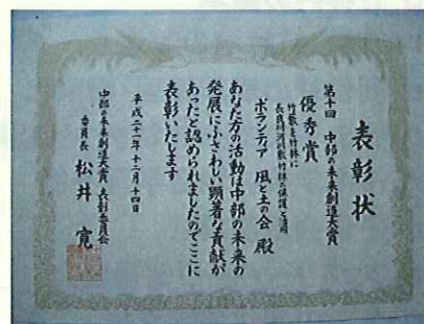 表彰状
第十回 中部の未来創造大賞
優秀賞
竹藪を竹林に
長良川河川敷竹林の保護と活用
ボランティア 風と土の会 殿
あなた方の活動は中部の未来の
発展にふさわしい顕著な貢献が
あったと認められましたのでここに
表彰いたします
平成二十一年十二月十四日
中部の未来創造大賞 表彰委員会
委員長 松井 寛